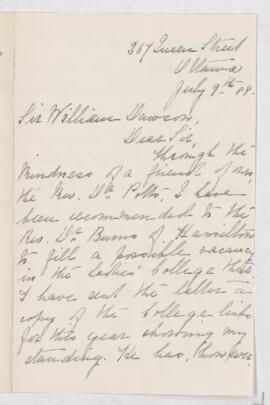 367 Queen Street
Ottawa
July 9th 88.
Sir William Dawson,
Dear Sir,
Through the
kindness of a friend of ours
the Rev. Dr Potts, I have
been recommended to the
Rev. Dr Burns of Hamilton
to fill a possible vacancy
in the Ladies' College there.
I have sent the latter a
copy of the College lists
for this year showing my
standing. He has, however,